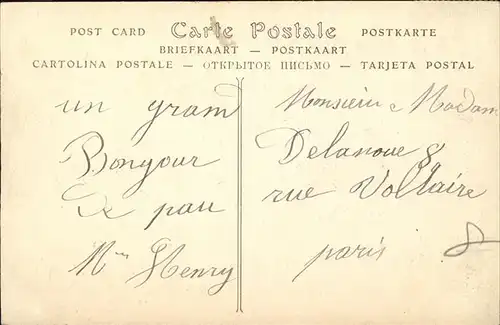 POST CARD Carte Postale POSTKARTE
BRIEFKAART — POSTKAART
CARTOLINA POSTALE — ОТКРЫТОЕ ПИСЬМО — TARJETA POSTAL
un grand
Bonjour
de pau
Mme Henry
Monsieur e Madam
Delanoue 8
rue Voltaire
paris
8